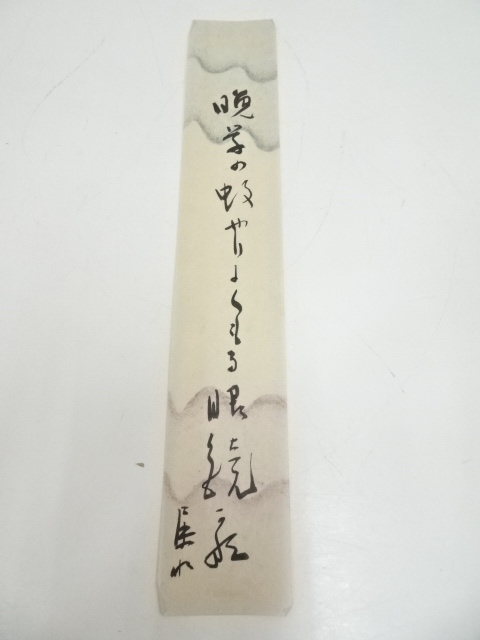 晩学の蚊やりにくもる眼鏡哉